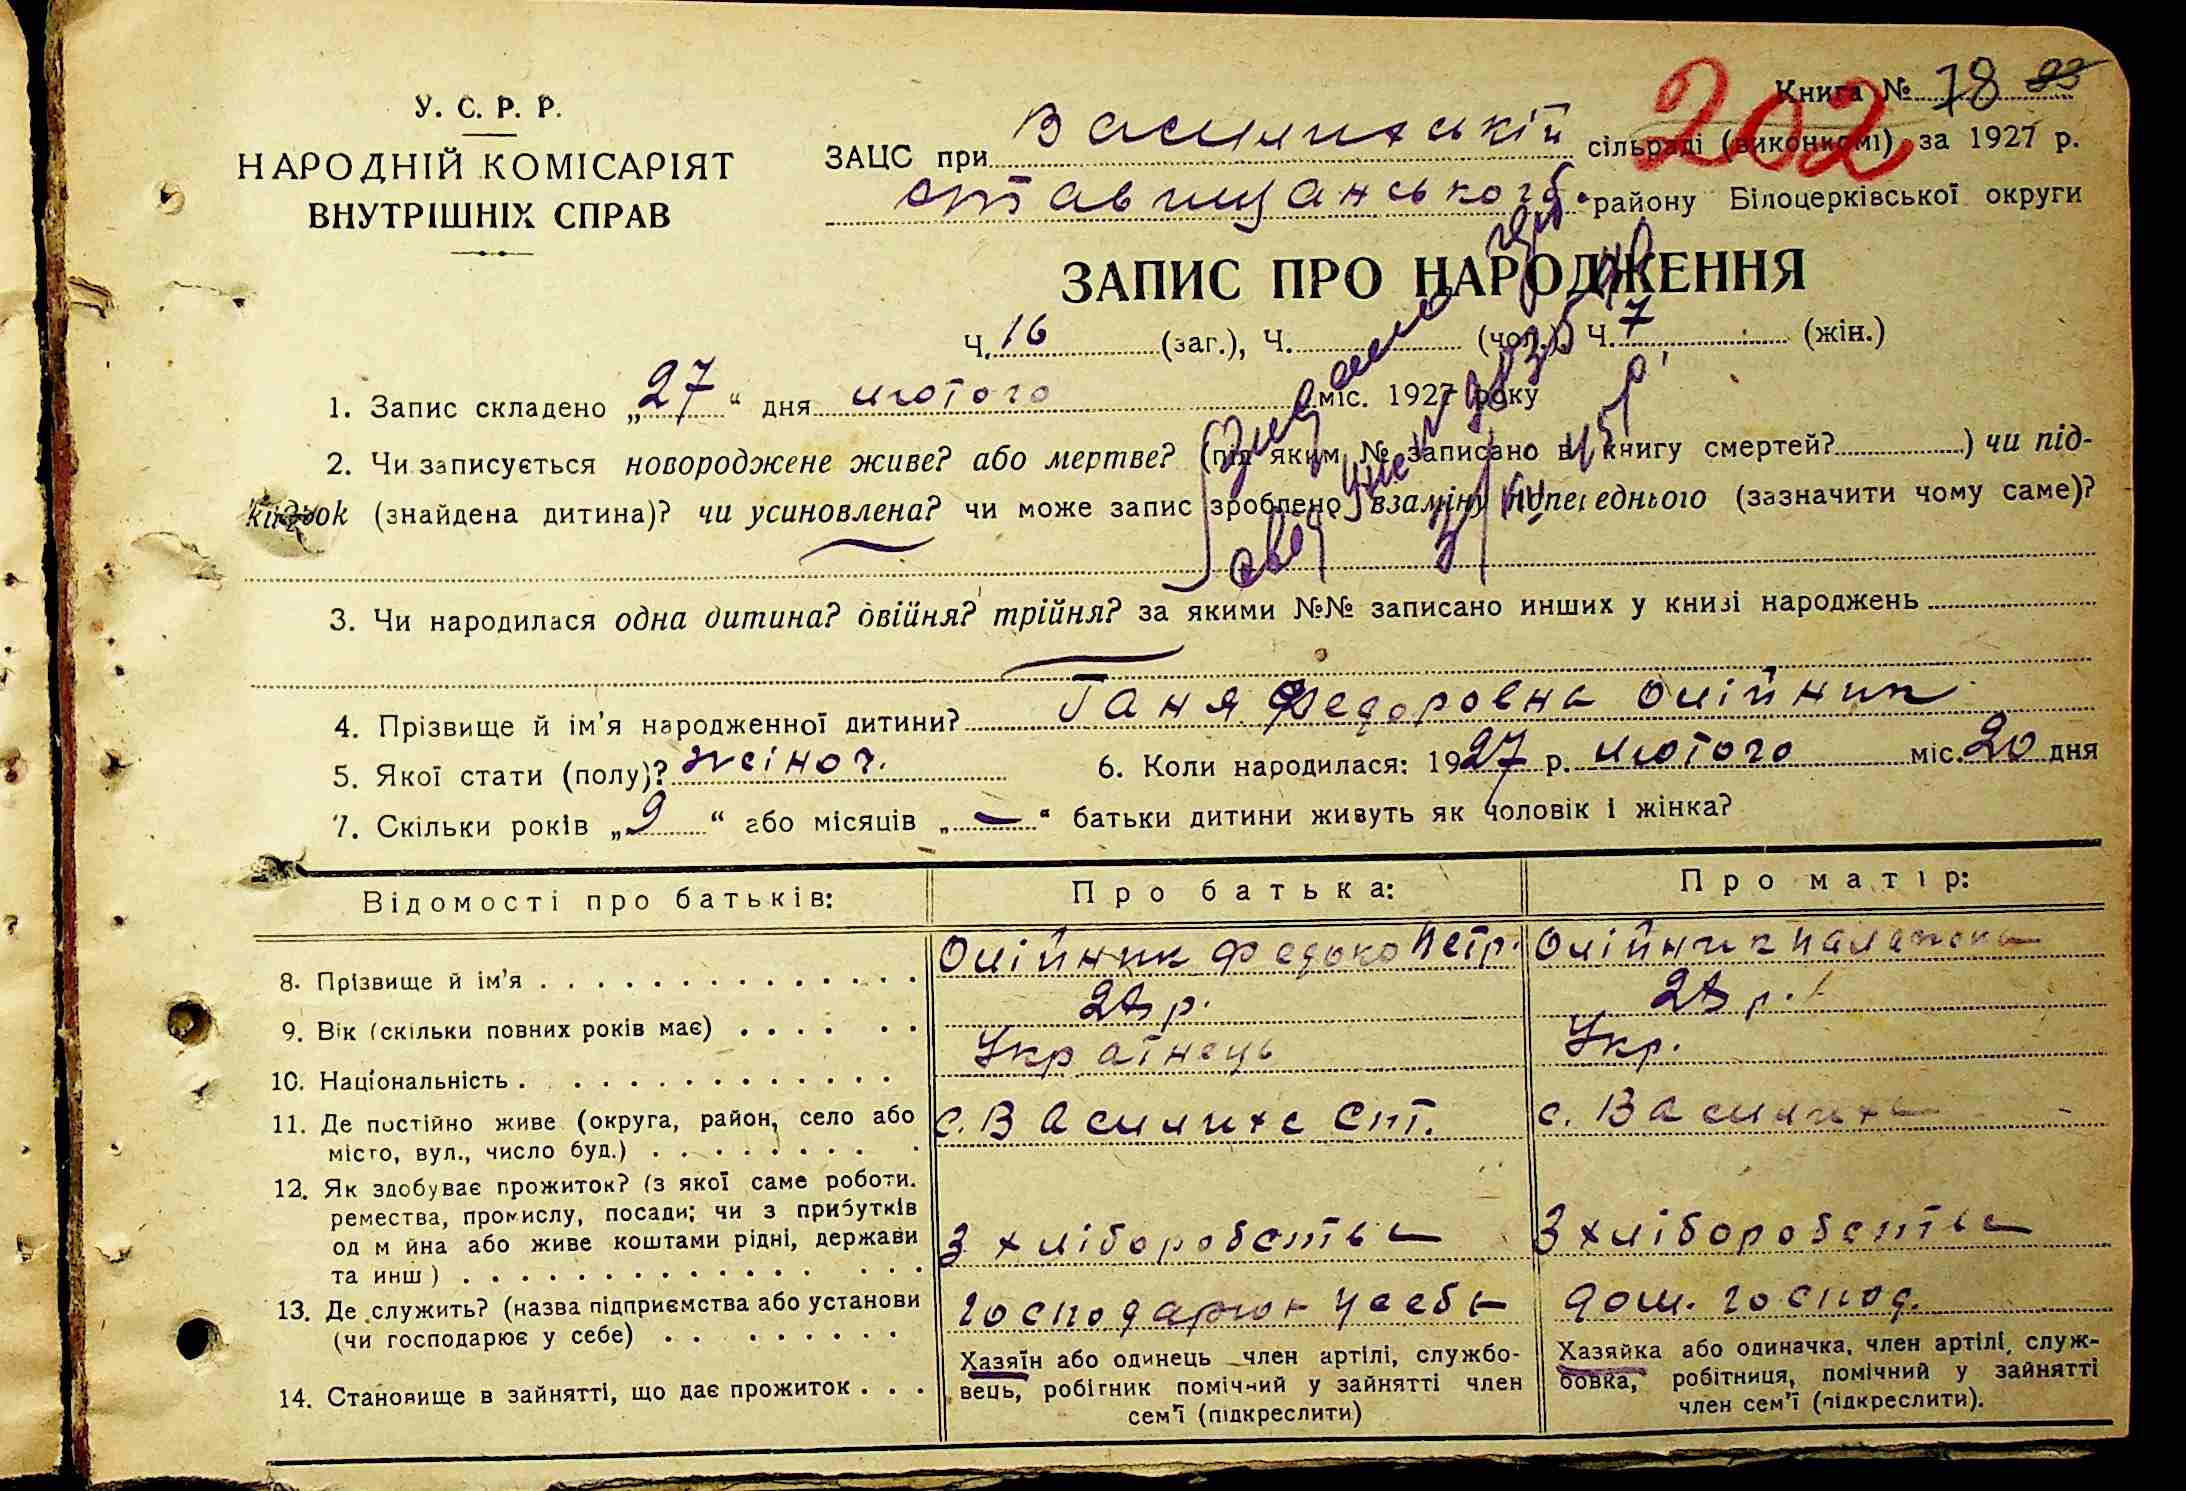 У. С. Р. Р.
НАРОДНІЙ КОМІСАРІЯТ
ВНУТРІШНІХ СПРАВ
Книга № 78 23
202
ЗАЦС при Василихській сільраді (виконкомі), за 1927 р.
ставищанського району Білоцерківської округи
ЗАПИС ПРО НАРОДЖЕННЯ
Ч. 16 (заг.), Ч. (чол.), Ч. 7 (жін.)
1. Запис складено „27“ дня лютого міс. 1927 року
2. Чи записується новороджене живе? або мертве? (під яким № записано в книгу смертей?) чи під-
кидьок (знайдена дитина)? чи усиновлена? чи може запис зроблено взамін попереднього (зазначити чому саме)?
3. Чи народилася одна дитина? двійня? трійня? за якими №№ записано инших у книзі народжень
4. Прізвище й ім’я народженної дитини? Ганя Федоровна Олійник
5. Якої стати (полу)? жіноч. 6. Коли народилася: 1927 р. лютого міс. 20 дня
7. Скільки років „9“ або місяців „—“ батьки дитини живуть як чоловік і жінка?
Відомості про батьків: Про батька: Про матір:
8. Прізвище й ім’я Олійник Федько Петр. Олійник Палажка
9. Вік (скільки повних років має) р. р.
10. Національність Українець Укр.
11. Де постійно живе (округа, район, село або
місто, вул., число буд.) с. Василиха Ст. с. Василиха
12. Як здобуває прожиток? (з якої саме роботи.
ремества, промислу, посади; чи з прибутків
од м йна або живе коштами рідні, держави
та инш) З хліборобства З хліборобства
13. Де служить? (назва підприємства або установи
(чи господарює у себе) господарює у себе дом. господ.
14. Становище в зайнятті, що дає прожиток
Хазяїн або одинець член артілі, службо-
вець, робігник помічний у зайнятті член
сем’ї (підкреслити)
Хазяйка або одиначка, член артілі, служ-
бовка, робітниця, помічний у зайнятті
член сем’ї (підкреслити).